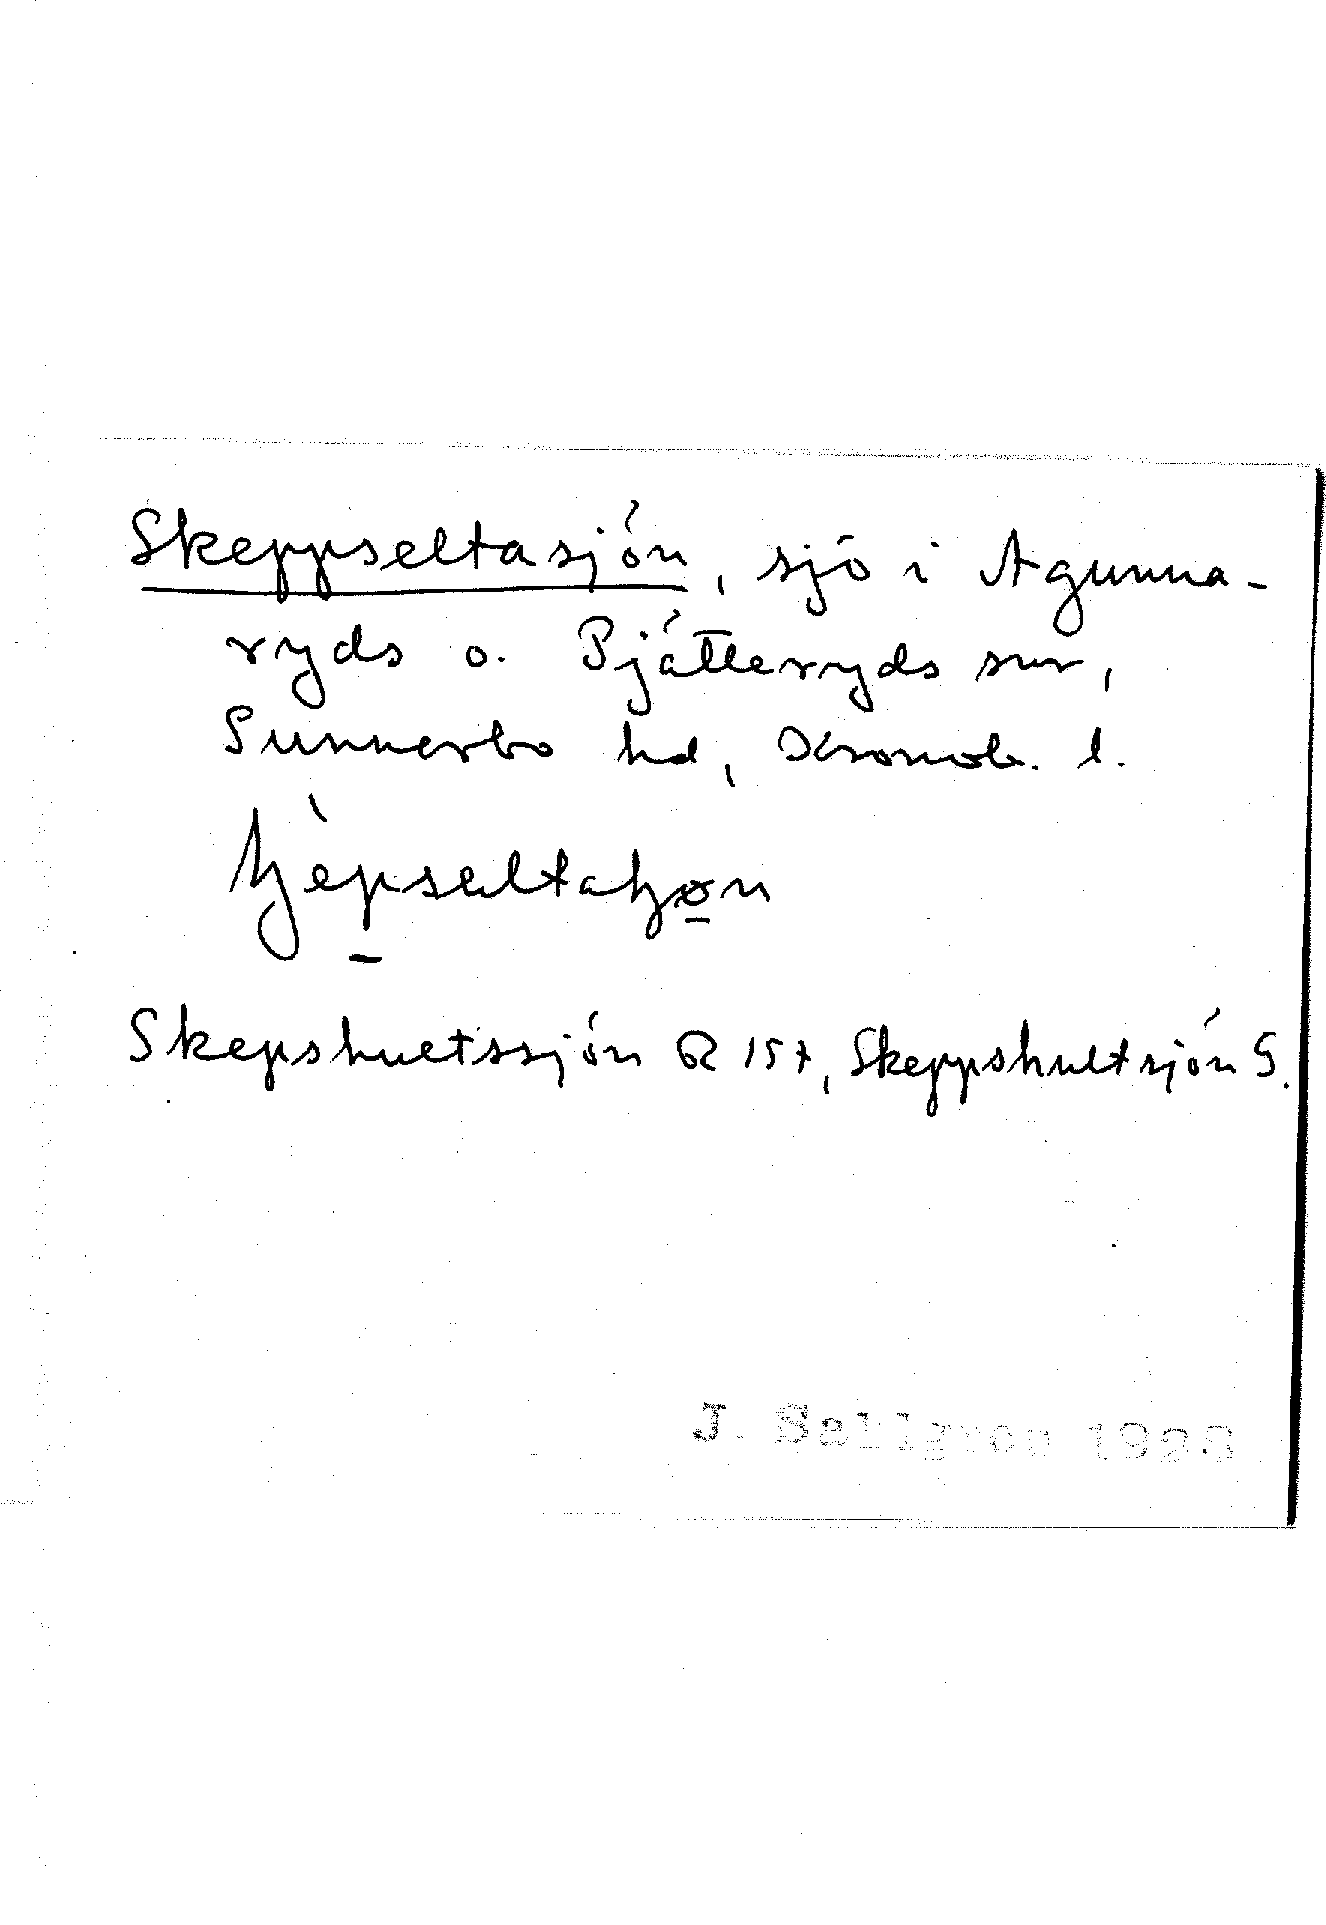 Skeppseltasjön, sjö i Agunna-
ryds o. Pjätteryds snr,
Sunnerbo hd, Kronob. l.
Skepshultssjön R 157, Skeppshultsjön S.
J. Sahlgren 1923